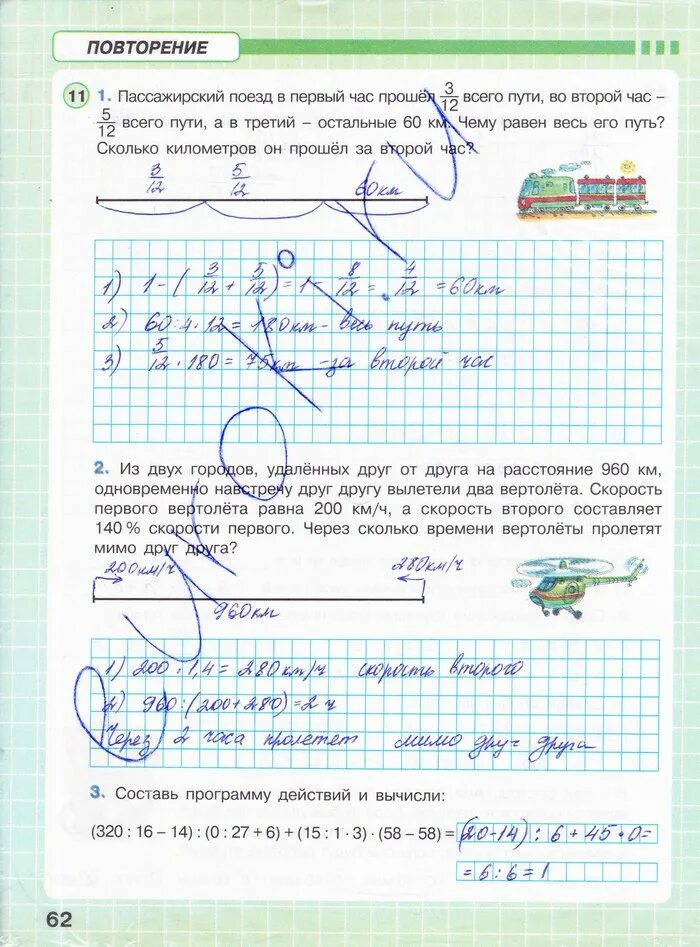 ПОВТОРЕНИЕ
11 1. Пассажирский поезд в первый час прошёл 3/12 всего пути, во второй час –
5/12 всего пути, а в третий – остальные 60 км. Чему равен весь его путь?
Сколько километров он прошёл за второй час?
3/12 5/12 60км
1) 1 - (3/12 + 5/12) = 1 - 8/12 = 4/12 = 60км
2) 60:4·12 = 180км - весь путь
3) 5/12 · 180 = 75км - за второй час
2. Из двух городов, удалённых друг от друга на расстояние 960 км,
одновременно навстречу друг другу вылетели два вертолёта. Скорость
первого вертолёта равна 200 км/ч, а скорость второго составляет
140 % скорости первого. Через сколько времени вертолёты пролетят
мимо друг друга?
200км/ч 280км/ч
960км
1) 200 : 1,4 = 280км/ч скорость второго
2) 960:(200+280)=2 ч
Через 2 часа пролетят мимо друг друга
3. Составь программу действий и вычисли:
(320 : 16 – 14) : (0 : 27 + 6) + (15 : 1 · 3) · (58 – 58) = (20-14) : 6 + 45 · 0 =
= 6 : 6 = 1
62
уроки.ru